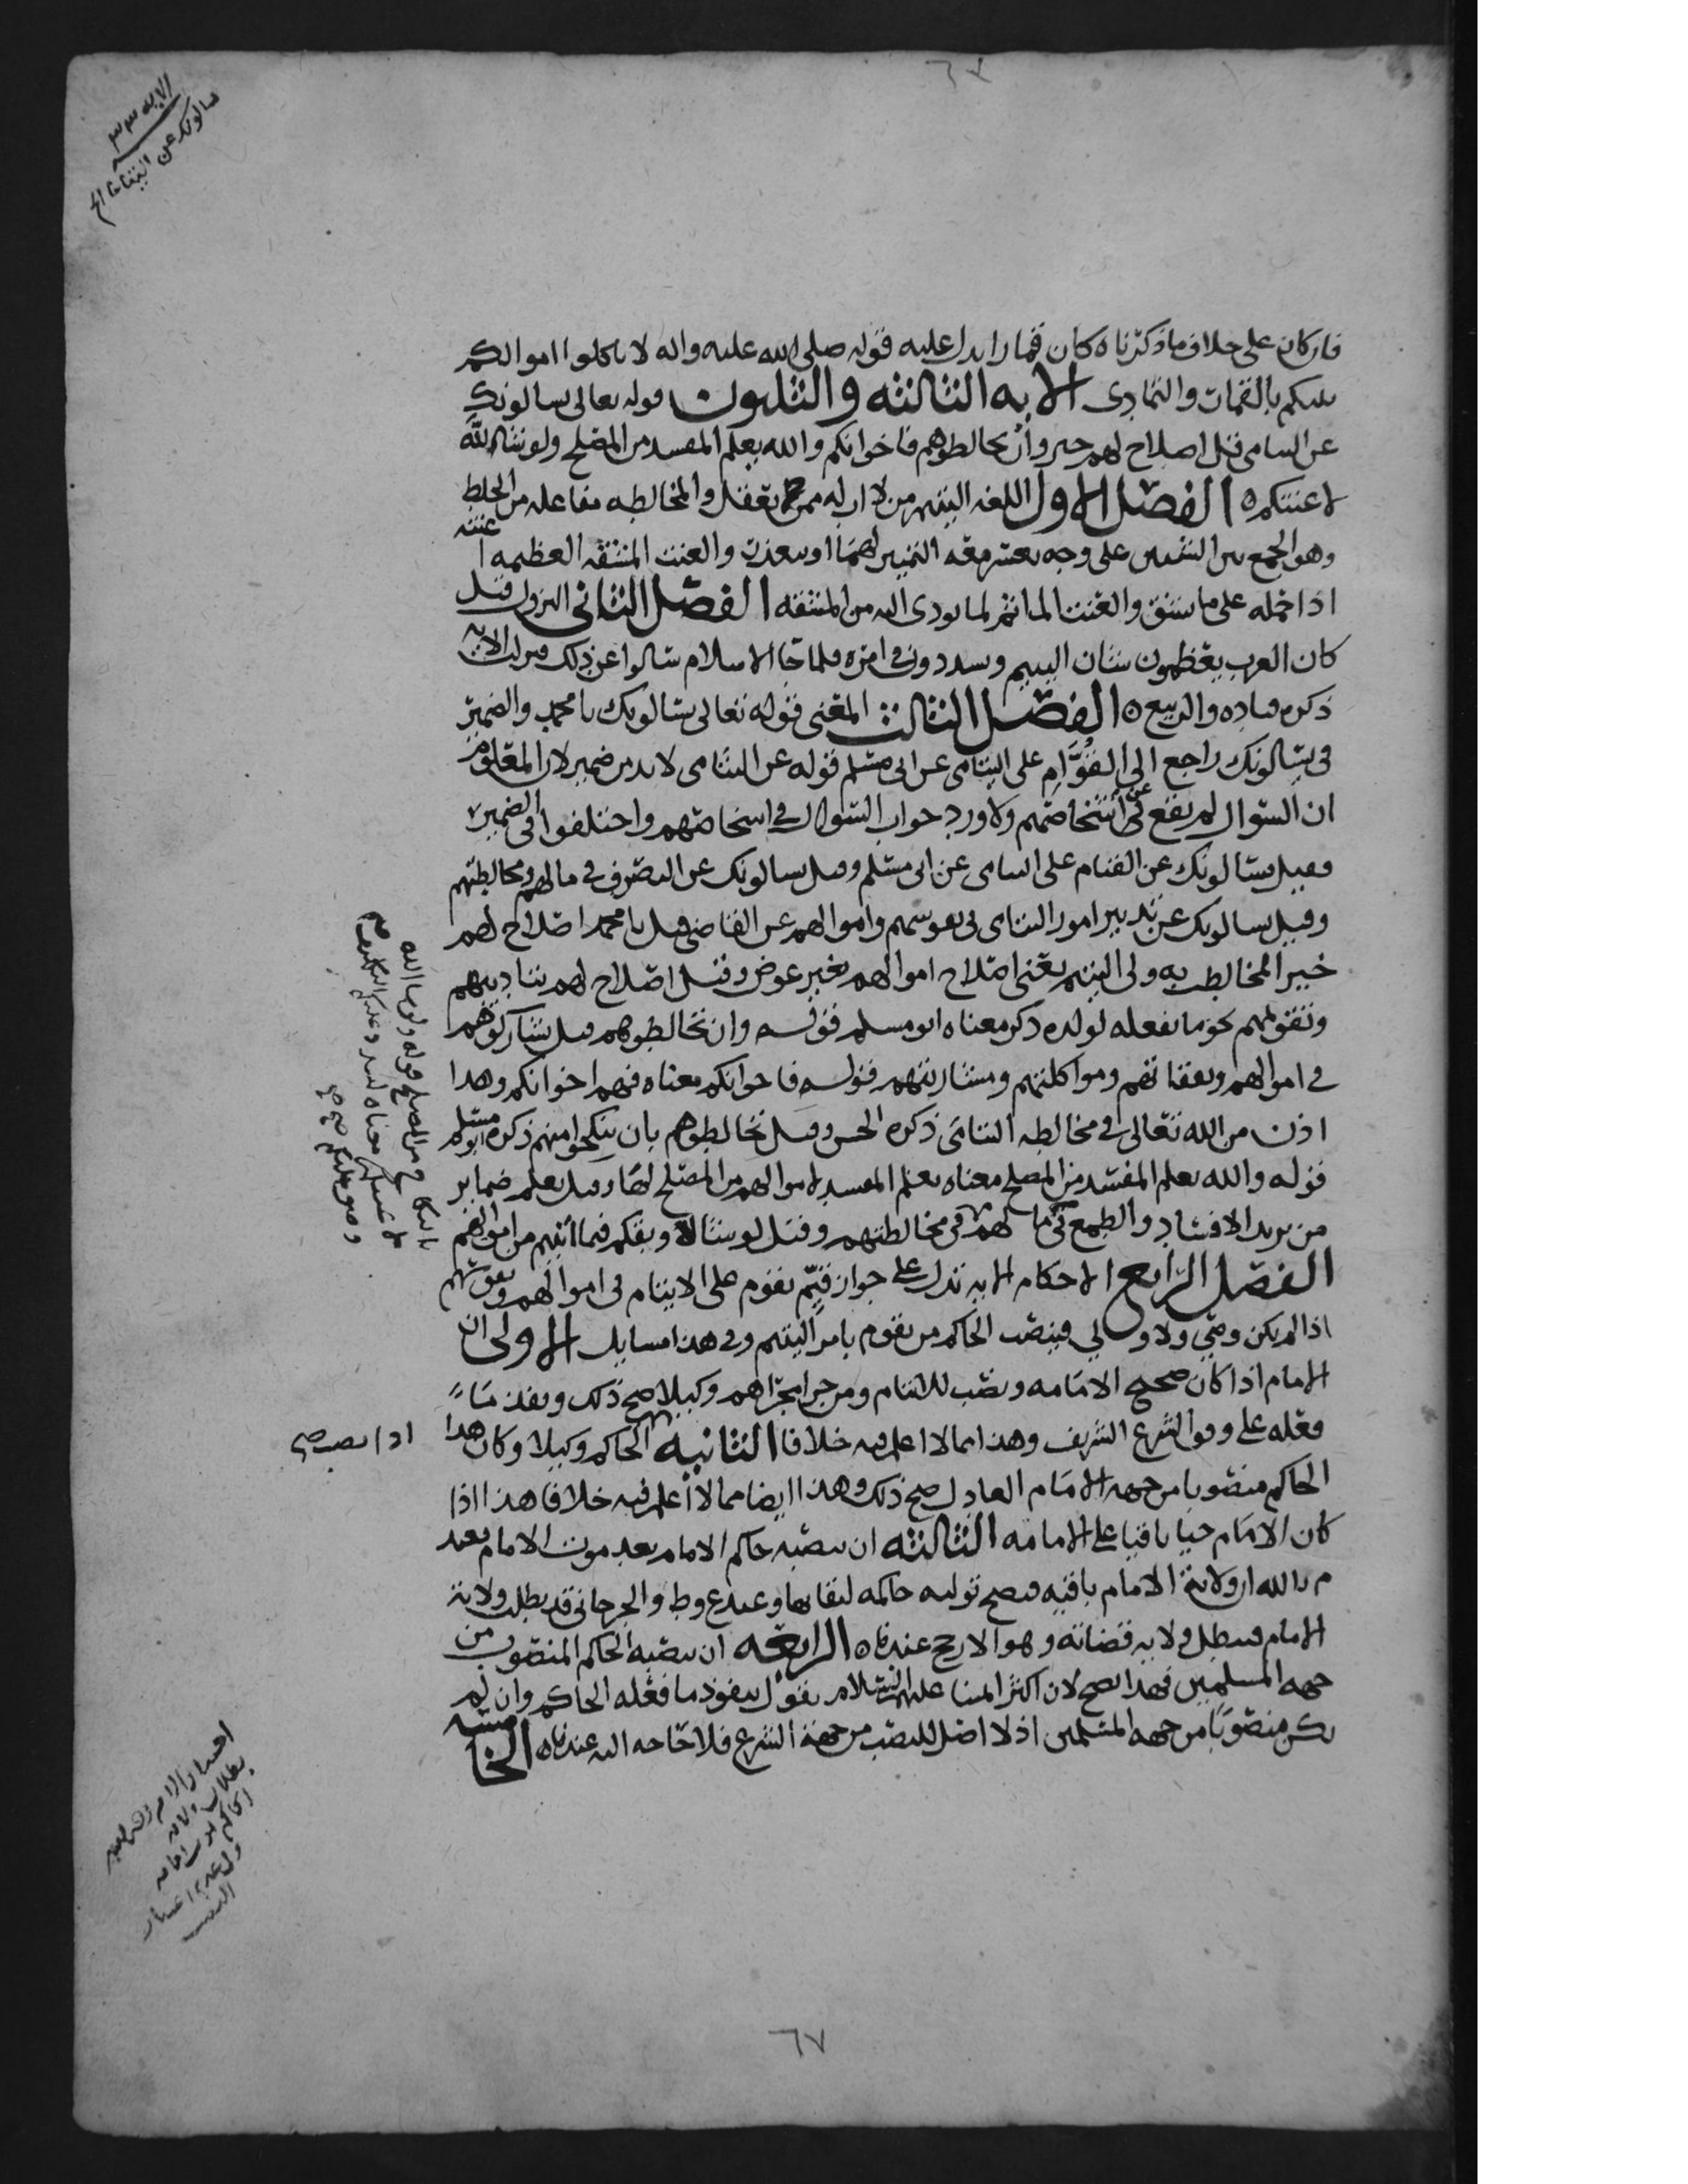 الايه ٣٣
سالونك عن اليتاما الخ
فان كان على خلاف ما ذكرناه كان قمارا يدل عليه قوله صلى الله عليه واله لا تاكلوا اموالكم
بينكم بالقمات والتمادى الايه الثالثه والثلثون قوله تعالى يسالونك
عن اليتامى قل اصلاح لهم خير وان تخالطوهم فاخوانكم والله يعلم المفسد من المصلح ولو شاء الله
لاعنتكم ه الفصل الاول اللغه اليتيم من لا اب له ممن لم يعقل والمخالطه مفاعله من الخلط
وهو الجمع بين الشيئين على وجه يعسر معه التمييز لهما او يتعذر والعنت المشقه العظيمه اعنته
اذا حمله على ما يشق والعنت الماثم لما يودى اليه من المشقه الفصل الثانى النزول قيل
كان العرب يعظمون شان اليتيم ويشددون فى امره فلما جا الاسلام سالوا عن ذلك فنزلت الايه
ذكره قتاده والربيع ه الفصل الثالث المعنى قوله تعالى يسالونك يا محمد والضمير
فى يسالونك راجع الى القوام على اليتامى عن ابى مسلم قوله عن اليتامى لابد من ضمير لان المعلوم
ان السوال لم يقع عن اشخاصهم ولا ورد جواب السوال فى اشخاصهم واختلفوا فى الضمير
فقيل يسالونك عن القيام على اليتامى عن ابى مسلم وقيل يسالونك عن التصرف فى مالهم ومخالطتهم
وقيل يسالونك عن تدبير امور اليتامى فى نفوسهم واموالهم عن القاضى قل يا محمد اصلاح لهم
خير المخاطب به ولى اليتيم يعنى اصلاح اموالهم بغير عوض وقيل اصلاح لهم بتاديبهم
وتقويمهم نحو ما يفعله لولده ذكر معناه ابو مسلم قوله وان تخالطوهم قيل تشاركوهم
فى اموالهم ونفقاتهم ومواكلتهم ومشاربتهم قوله فاخوانكم معناه فهم اخوانكم وهذا
اذن من الله تعالى فى مخالطه اليتامى ذكره الحسن وقيل تخالطوهم بان ينكحوا منهم ذكره ابو مسلم
قوله والله يعلم المفسد من المصلح معناه يعلم المفسد لاموالهم من المصلح لها وقيل يعلم ضماير
من يريد الافساد والطمع فى مالهم فى مخالطتهم وقيل لو شا لاوبقكم فيما اصبتم من اموالهم
الفصل الرابع الاحكام الايه تدل على جواز قيم يقوم على الايتام فى اموالهم ونفوسهم
اذا لم يكن وصى ولا ولى فينصب الحاكم من يقوم بامر اليتيم وفى هذا مسايل الاولى ان
الامام اذا كان صحيح الامامه ونصب للايتام ومن جرا مجراهم وكيلا صح ذلك ونفذ ما
فعله على وفق الشرع الشريف وهذا مما لا اعلم فيه خلافا الثانيه الحاكم وكيلا وكان هذا
اذا نصب صح
الحاكم منصوبا من جهه الامام العادل صح ذلك وهذا ايضا مما لا اعلم فيه خلافا هذا اذا
كان الامام حيا باقيا على الامامه الثالثه ان ينصبه حاكم الامام بعد موت الامام فعند
م بالله ان ولاية الامام باقيه فيصح توليه حاكمه لبقائها وعند ع وط والجرجانى قد بطلت ولاية
الامام فتبطل ولايه قضاته وهو الارجح عندنا ه الرابعه ان ينصبه الحاكم المنصوب من
جهه المسلمين فهذا يصح لان اكثر ائمتنا عليهم السلام يقول بنفوذ ما فعله الحاكم وان لم
يكن منصوبا من جهه المسلمين اذ لا اصل للنصب من جهة الشرع فلا حاجه اليه عندنا ه الخامسه
٦٧